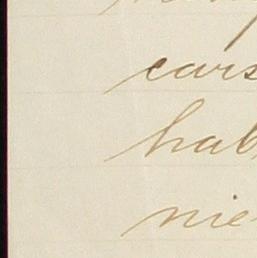 cars
hab
nie